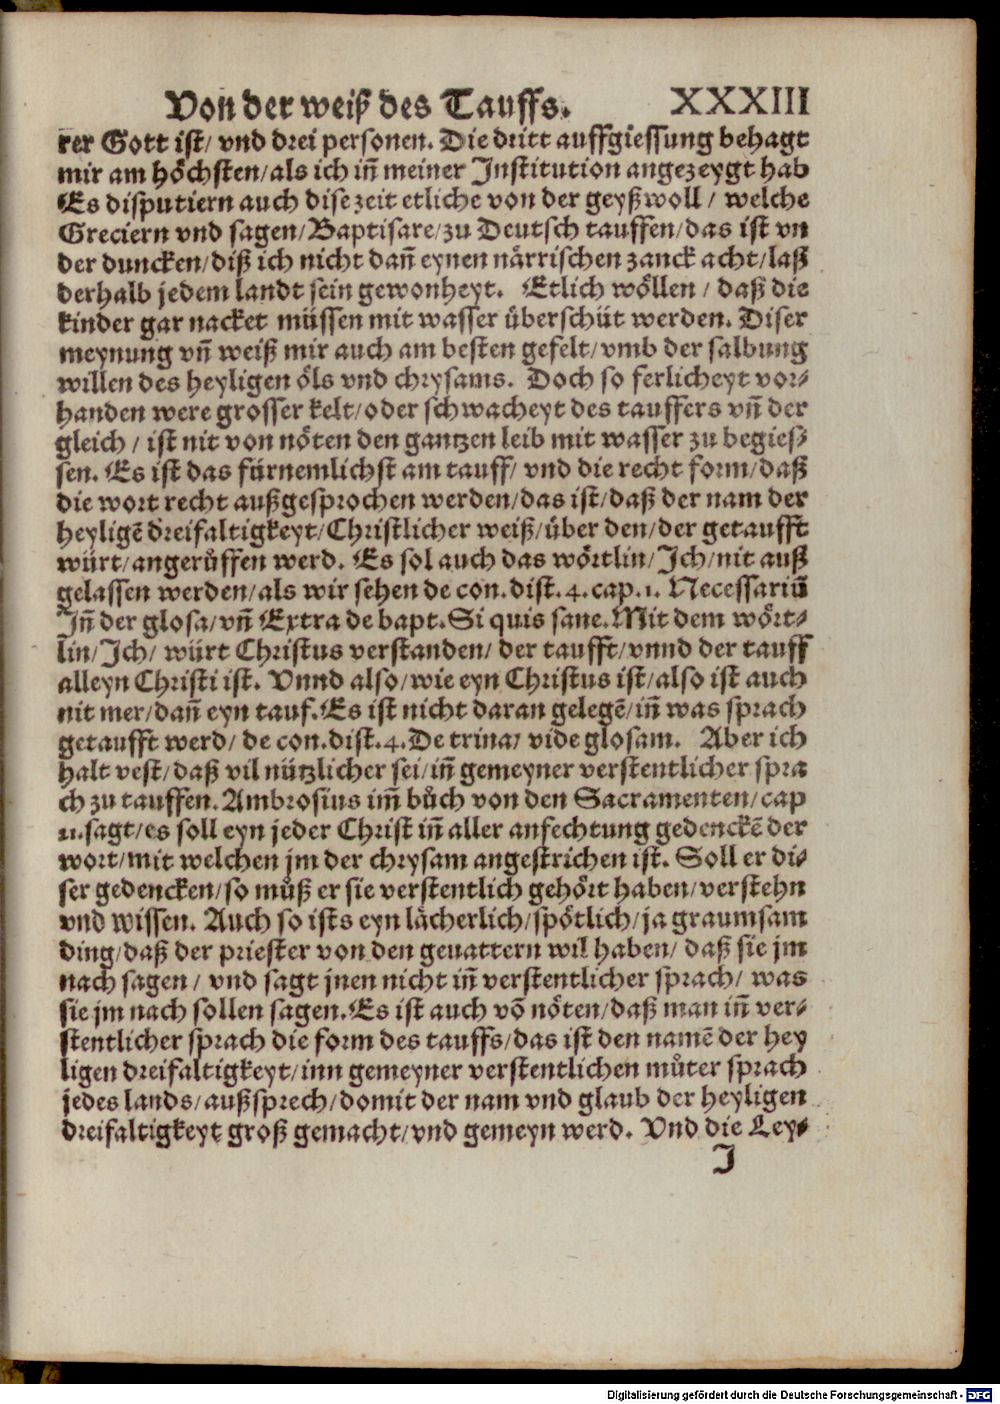 Von der weiß des Tauffs. XXXIII
rer Gott ist/ vnd drei personen. Die dritt auffgiessung behagt
mir am höchsten/als ich iñ meiner Institution angezeygt hab
Es disputiern auch dise zeit etliche von der geyß woll / welche
Greciern vnd sagen/Baptisare/zu Deutsch tauffen/das ist vn
der duncken/diß ich nicht dañ eynen närrischen zanck acht/laß
derhalb jedem landt sein gewonheyt. Etlich wöllen / daß die
kinder gar nacket müssen mit wasser überschüt werden. Diser
meynung vñ weiß mir auch am besten gefelt/vmb der salbung
willen des heyligen öls vnd chrysams. Doch so ferlicheyt vor⸗
handen were grosser kelt/oder schwacheyt des tauffers vñ der
gleich / ist nit von nöten den gantzen leib mit wasser zu begies⸗
sen. Es ist das fürnemlichst am tauff/ vnd die recht form/daß
die wort recht außgesprochen werden/das ist/daß der nam der
heyligẽ dreifaltigkeyt/Christlicher weiß/über den/der getaufft
würt/angerůffen werd. Es sol auch das wörtlin/Ich/nit auß
gelassen werden/als wir sehen de con. dist. 4. cap. 1. Necessariũ
Iñ der glosa/vñ Extra de bapt. Si quis sane. Mit dem wört⸗
lin/Ich/ würt Christus verstanden/ der taufft/vnnd der tauff
alleyn Christi ist. Vnnd also/wie eyn Christus ist/also ist auch
nit mer/dañ eyn tauf. Es ist nicht daran gelegẽ/iñ was sprach
getaufft werd/ de con. dist. 4. De trina/ vide glosam. Aber ich
halt vest/daß vil nützlicher sei/iñ gemeyner verstentlicher spra
ch zu tauffen. Ambrosius im̃ bůch von den Sacramenten/cap
11. sagt/es soll eyn jeder Christ iñ aller anfechtung gedenckẽ der
wort/mit welchen jm der chrysam angestrichen ist. Soll er di⸗
ser gedencken/so můß er sie verstentlich gehört haben/verstehn
vnd wissen. Auch so ists eyn lächerlich/spötlich/ja graumsam
ding/daß der priester von den geuattern wil haben/ daß sie jm
nach sagen / vnd sagt jnen nicht iñ verstentlicher sprach/ was
sie jm nach sollen sagen. Es ist auch võ nöten/daß man iñ ver⸗
stentlicher sprach die form des tauffs/das ist den namẽ der hey
ligen dreifaltigkeyt/inn gemeyner verstentlichen můter sprach
jedes lands/außsprech/domit der nam vnd glaub der heyligen
dreifaltigkeyt groß gemacht/vnd gemeyn werd. Vnd die Ley⸗
J
Digitalisierung gefördert durch die Deutsche Forschungsgemeinschaft - DFG